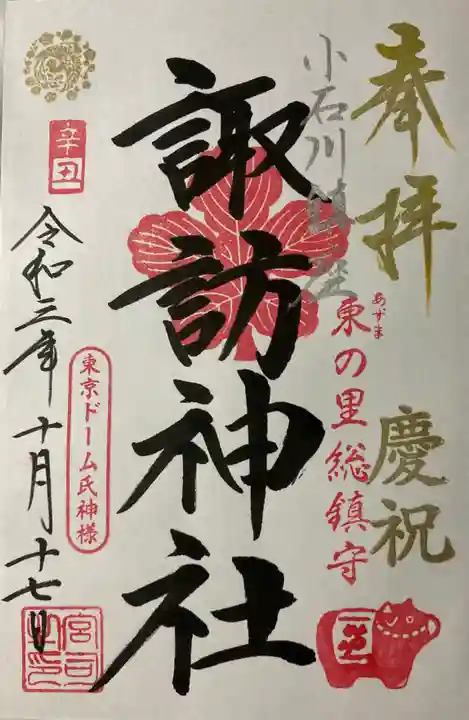 奉拝
慶祝
小石川鎮座
あずま
東の里総鎮守
諏訪神社
辛丑
令和三年十月十七日
東京ドーム氏神様